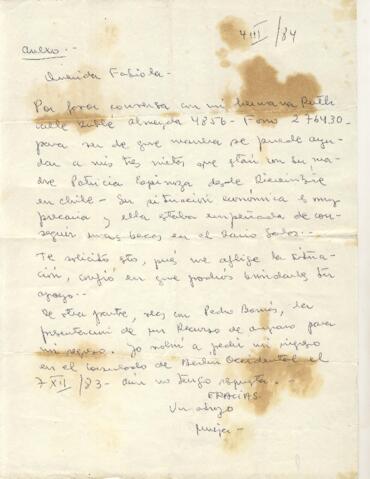 4 III / 84
Anexo.-
Querida Fabiola-
Por favor conversa con mi hermana Ruth
calle Dublé Almeyda 4856- Fono 276430-
para ver de que manera se puede ayu-
dar a mis tres nietos que están con su ma-
dre Patricia Espinoza desde Diciembre
en Chile- Su situación económica es muy
precaria y ella estaba empeñada de con-
seguir unas becas en el
Te solicito esto, pués me aflige la situa-
ción, confío en que podrás brindarles tu
apoyo.-
De otra parte, veas con Pedro Barnés, la
presentación de un Recurso de amparo para
mi regreso. Yo volví a pedir mi ingreso
en el consulado de Berlín Occidental el
7 XII / 83- aún no tengo respuesta.-
GRACIAS
Un abrazo